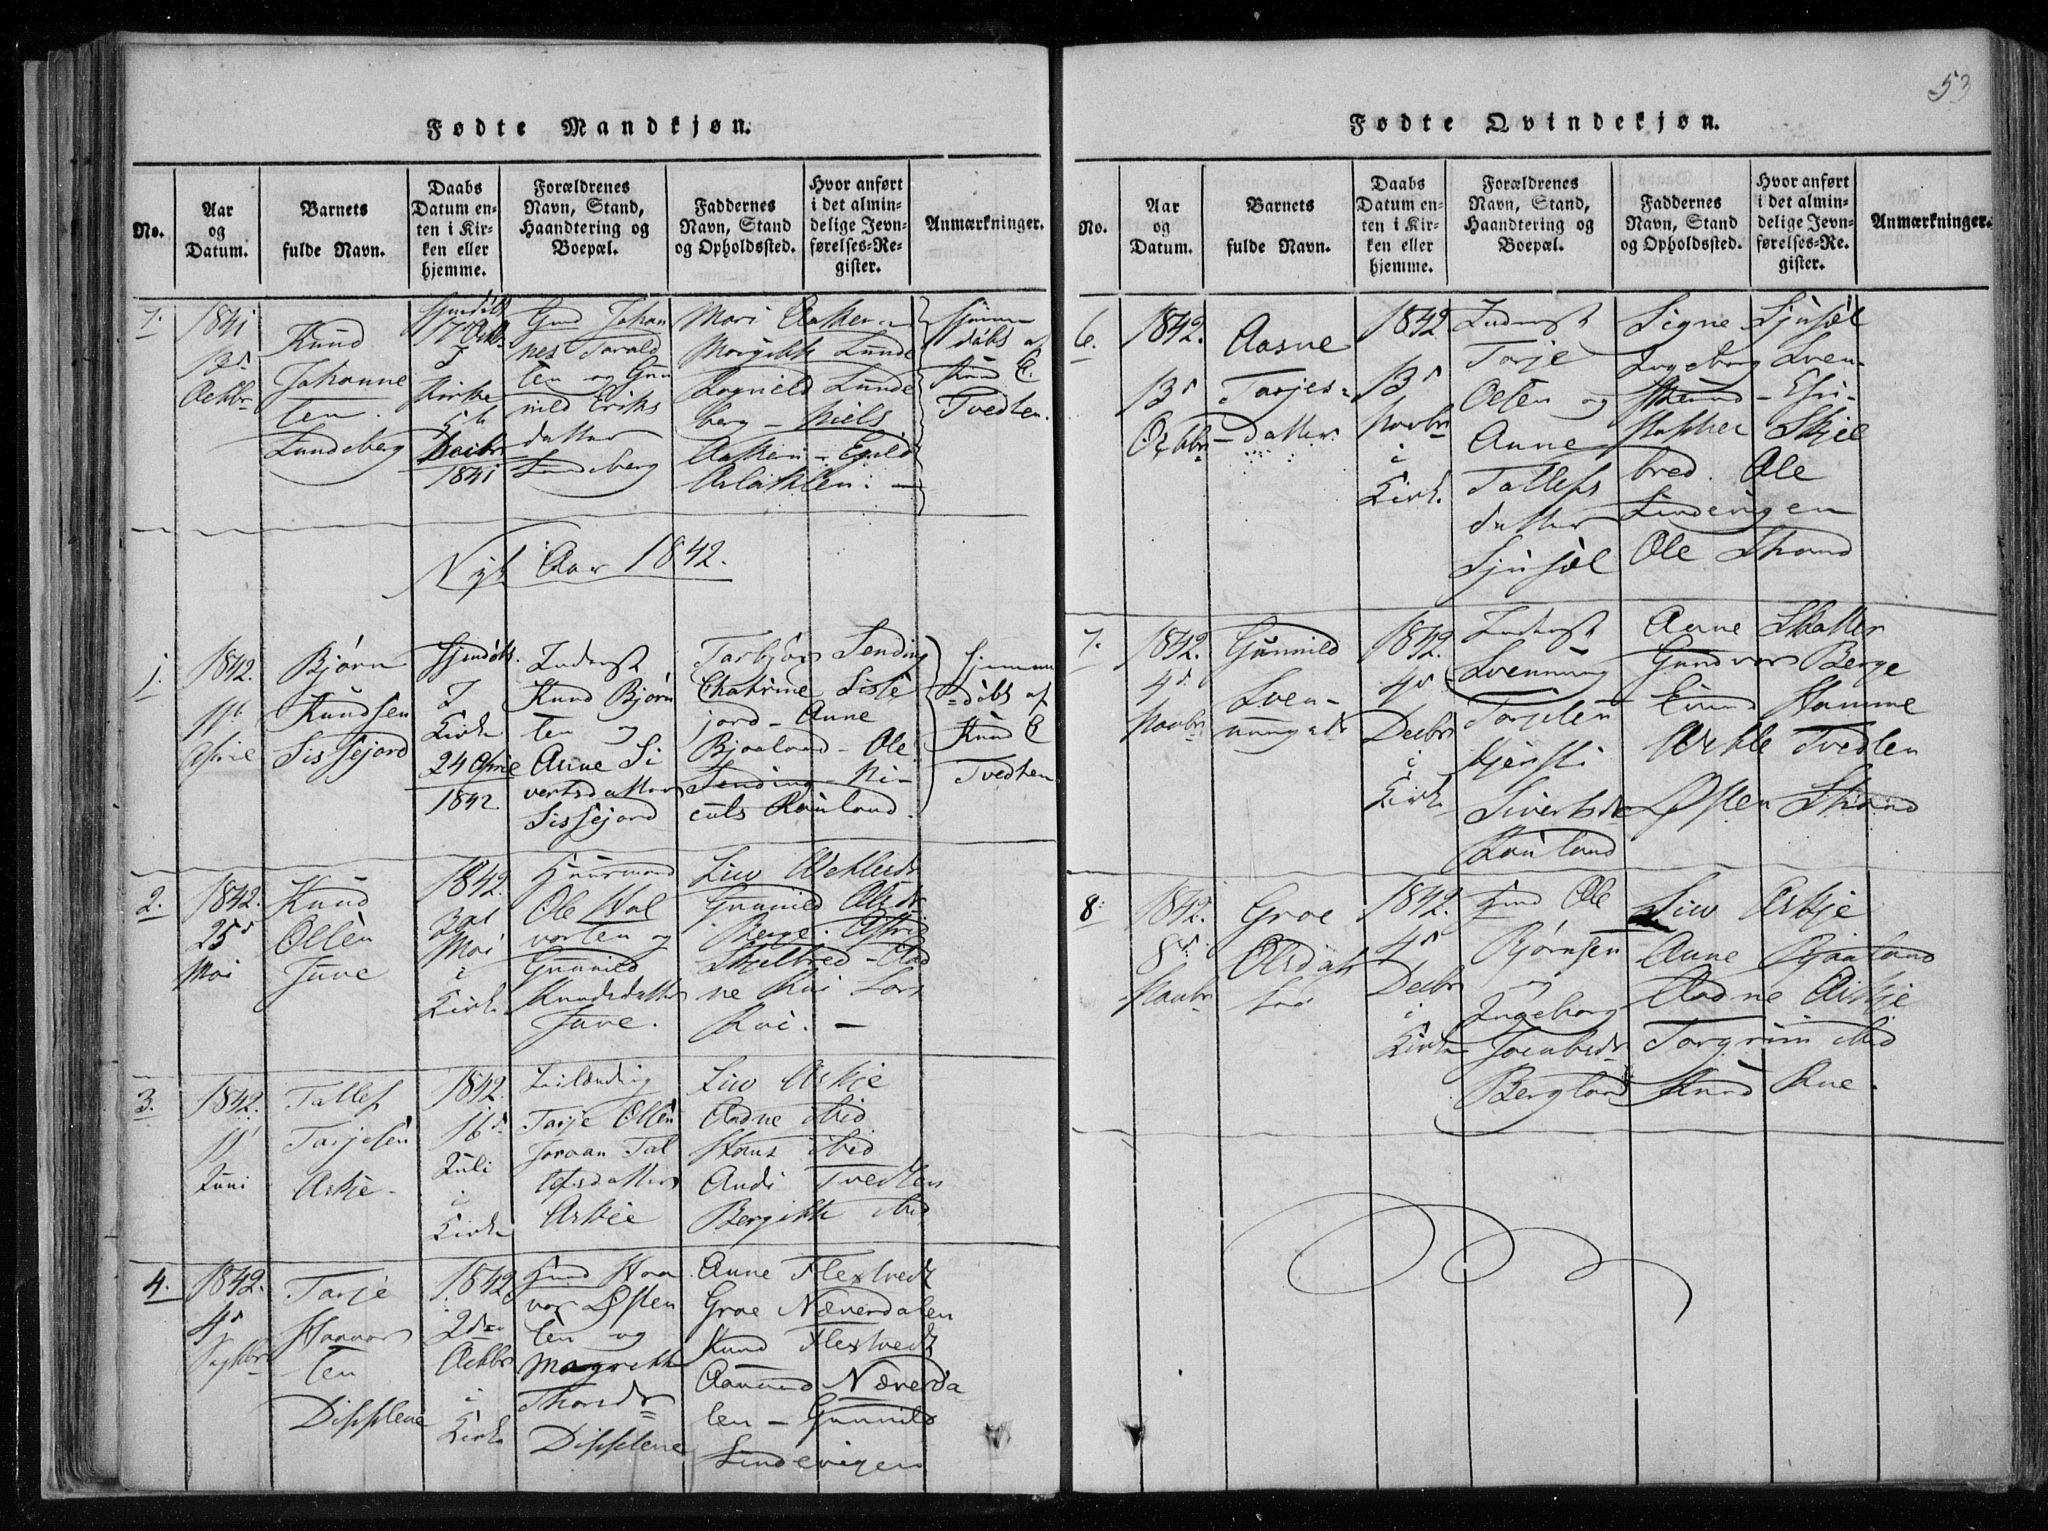 53
Fødte Mandkjøn.
No.
Aar og Datum.
Barnets fulde Navn.
Daabs Datum enten i Kirken eller hjemme.
Forældrenes Navn, Stand, Haandtering og Boepæl.
Faddernes Navn, Stand og Opholdssted.
Hvor anført i det almindelige Jevnførelses-Register.
Anmærkninger.
7.
1841
13d
Octbr
Knud
Johanne
sen
Lundeberg
17 Octb.
I
Kirke
Decbr
1841
Gmd Johan
nes Torald
sen og Gun
nild Eriks
datter
Lundeberg
Mari
Margith Lunde
Rognild Lunde
berg - Niels
Hjemme
døbt af
Knud E.
Tvedten.
Nyt Aar 1842.
1.
1842.
11t
April
Bjørn
Knudsen
Sissejord
Hjmdøbt.
I
Kirke
24 April
1842.
Inderst
Knud Bjørn
sen og
Anne Si
vertsdatter
Sissejord
Torbjør Sending
Chatrine Sisse
jord - Anne
Bjaaland - Ole
Sending - Ni
culs Rauland.
Hjemme
døbt af
Knud E
Tvedten
2.
1842.
25d
Mai
Knud
Olsen
Juve
1842.
Mai
i
Kirke
Huusmand
Ole Hal
vorsen og
Gunnild
Knudsdatter
Juve.
Liv
Gunnild Olsdr
Berge. Astri
Skjelbred - Aad
ne Rui Lars
Rui. -
3.
1842.
11t
Juni
Tallef
Tarjesen
Askje.
1842.
16d
Juli
i
Kirke
Leilænding
Tarje Olsen
Joraan Tal
lefsdatter
Askje
Liv Askje
Aadne ibid
Hans ibid
Tvedten
Bergith ibid
4.
1842.
4d
Septbr
Tarje
Haavor
sen
Dipplene
1842
2den
Octbr
i
Kirke
Gmd Haa
vor Østen
sen og
Margith
Thorsdr
Dipplene
Anne Flextvedt
Groe Næverdalen
Knud Flextvedt
Aanund Næverda
len - Gunnild
Lindevigen
Fødte Qvindekjøn.
No.
Aar og Datum.
Barnets fulde Navn.
Daabs Datum enten i Kirken eller hjemme.
Forældrenes Navn, Stand, Haandtering og Boepæl.
Faddernes Navn, Stand og Opholdsted.
Hvor anført i det almindelige Jevnførelses-Re.gister.
Anmærkninger.
6.
1842.
13d
Octbr
Aasne
Tarjes-
datter
1842
13d
Novbr
i
Kirk.
Inderst
Tarje
Olsen og
Anne
Tallefs
datter
Sjusøl
Signe Sjusøl
Ingeborg Sven
bred. Ole
Lindevigen
Ole Strand
7.
1842.
4d
Novbr
Gunnild
Sven-
nungsdr
1842.
4d
Decbr
i
Kirke
Inderst
Svennung
Torjesen
Kjersti
Sivertsdr
Rauland
Anne
Gundvor Berge
Eivind Homme
Tvedten
Østen Strand
8.
1842.
8d
Novbr
Groe
Olsdat
1842.
4d
Decbr
i
Kirke
Gmd Ole
Bjørnsen
og
Ingeborg
Bergland
Liv Askje
Anne Bjaaland
Aadne Askje
Torgrim ibid
Knud Rue.